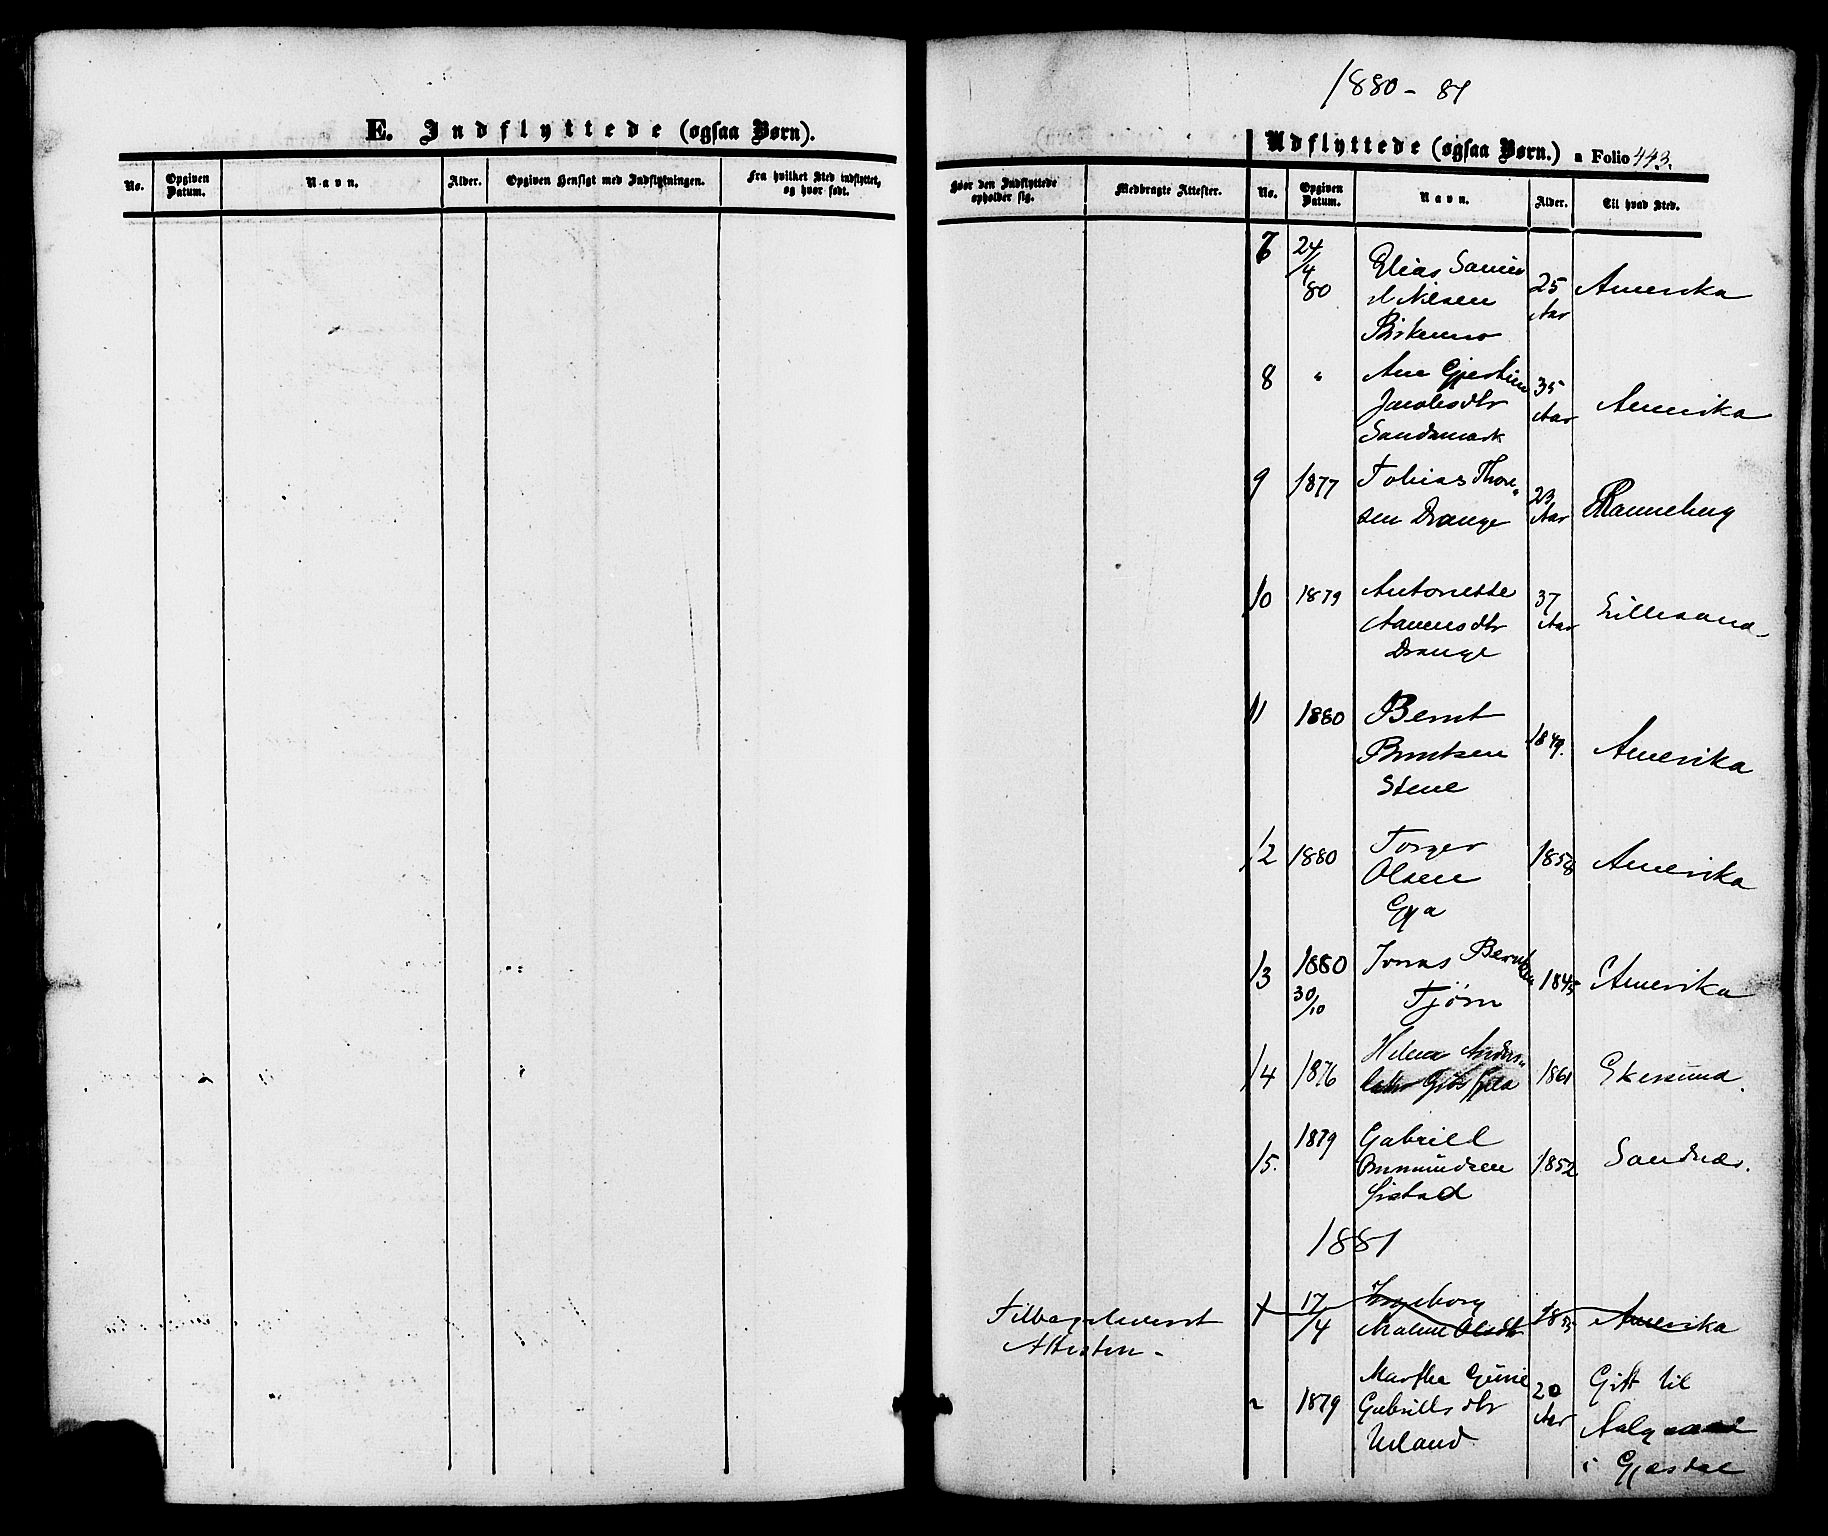 E. Indflyttede (ogsaa Børn).
No. Opgiven Datum. Navn. Alder. Opgiven Hensigt med Indflytningen. Fra hvilket Sted indflyttet, og hvor født.
1880-81
Udflyttede (ogsaa Børn.) a Folio 443.
Hvor den Indflyttede opholder sig. Medbragte Attester. No. Opgiven Datum. Navn. Alder. Til hvad Sted.
7 24/4 80 Elias Samu
el Nilsen 25 Aar Amerika
8 " Ane Gjertine 35 Aar Amerika
Jacobsdtr
Sandsmark
9 1877 Tobias Thor-
sen Drange 23 Aar Ranneberg
10 1879 Antonette 37 Aar Lillesand
Drange
11 1880 Bernt
Berntsen 1849. Amerika
Stene
12 1880 Torger 1858 Amerika
Olsen
Gya
13 1880 30/10 Jonas Berntsen 1845 Amerika
Tjørn
14 1876 Helene Anders- 1861 Ekersund.
15. 1879 Gabriel
Ommundsen 1852 Sandnæs.
Gistad
1881
Tilbageleveret
Attesten-
1 17/4 Ingeborg
Malene Olsdtr 1855 Amerika
2 1879 Martha Gunie 20 Aar Gift til
Gabrielsdtr Aalgaard
Ueland i Gjesdal